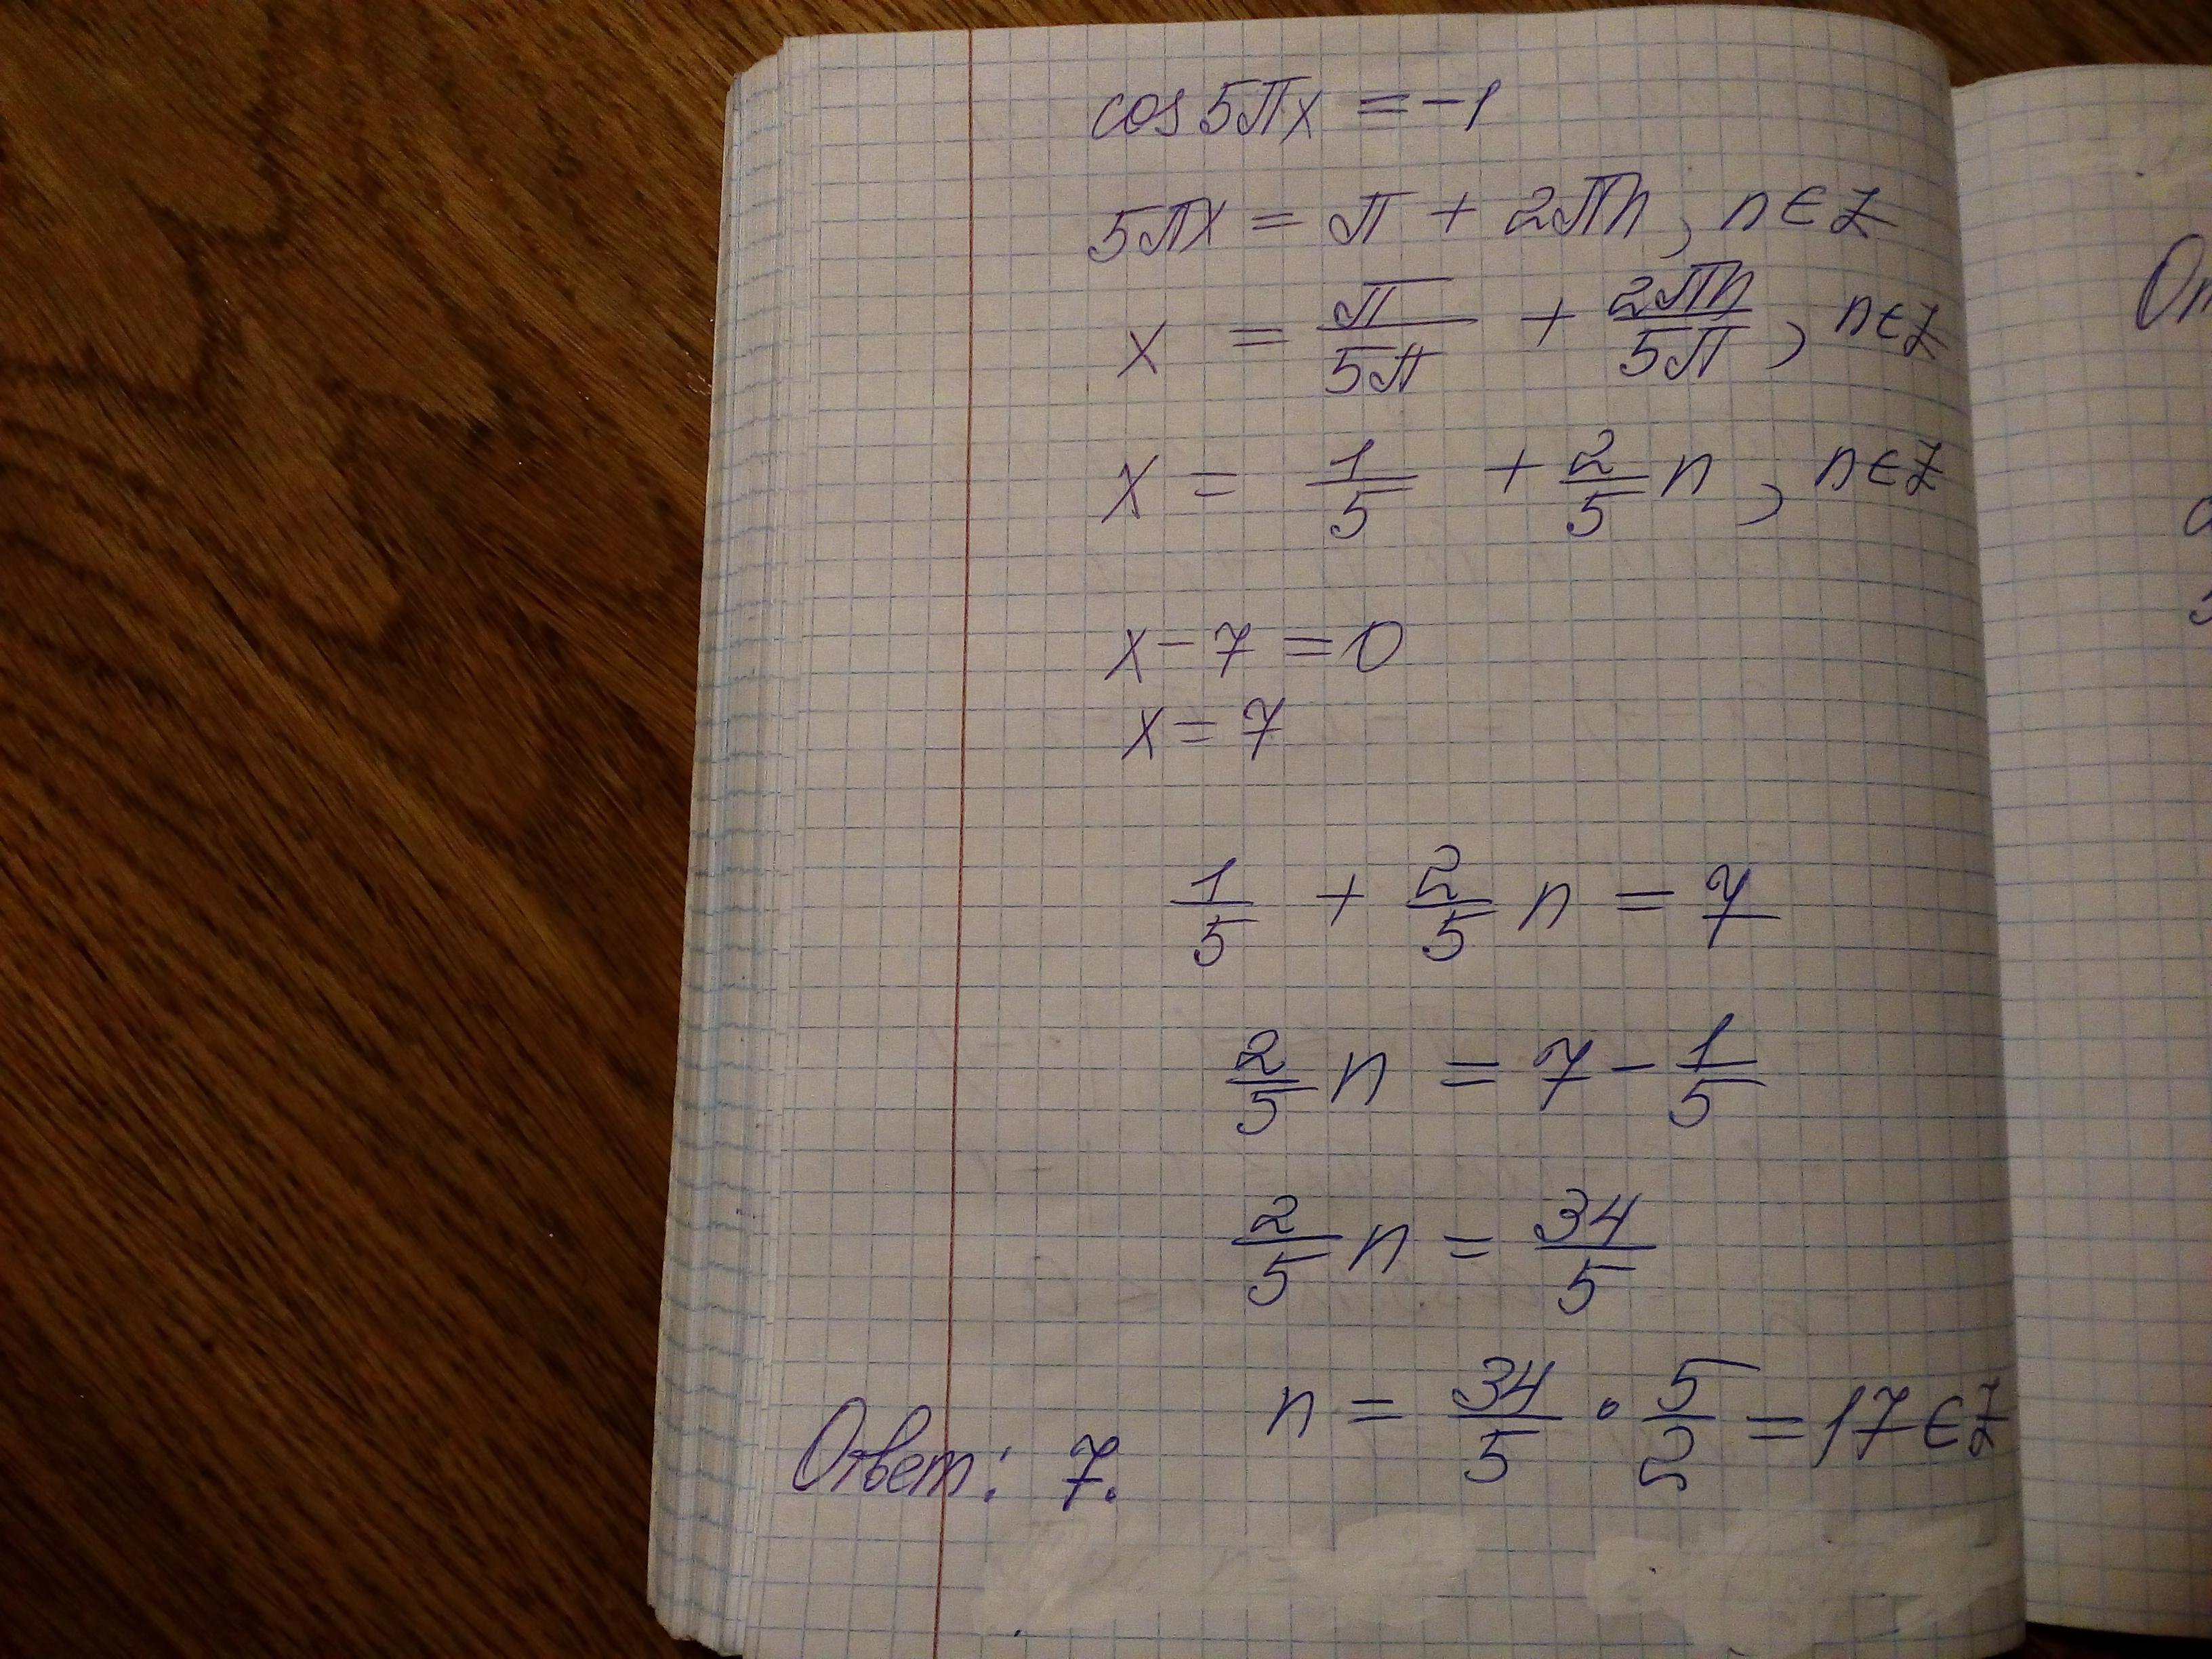 cos 5πx = -1
5πx = π + 2πn, n ∈ Z
x = π/5π + 2πn/5π, n ∈ Z
x = 1/5 + 2/5 n, n ∈ Z
x - 7 = 0
x = 7
1/5 + 2/5 n = 7
2/5 n = 7 - 1/5
2/5 n = 34/5
n = 34/5 · 5/2 = 17 ∈ Z
Ответ: 7.